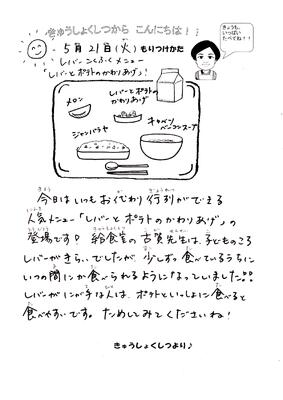 きゅうしょくしつから こんにちは！
きょうも、
いっぱい
たべてね！！
5月21日(火) もりつけかた
レバーこくふくメニュー
「レバーとポテトのかわりあげ♪」
レバーとポテトの
かわりあげ
メロン
キャベツ
ベーコンスープ
ジャンバラヤ
今日はいつもおかわり行列ができる
人気メニュー「レバーとポテトのかわりあげ」の
登場です？ 給食室の古賀先生は、子どものころ
レバーがきらいでしたが、少しずつ食べているうちに
いつの間にか食べられるようになっていました!!
レバーがにが手な人は、ポテトといっしょに食べると
食べやすいです。ためしてみてくださいね！
きゅうしょくしつより♪